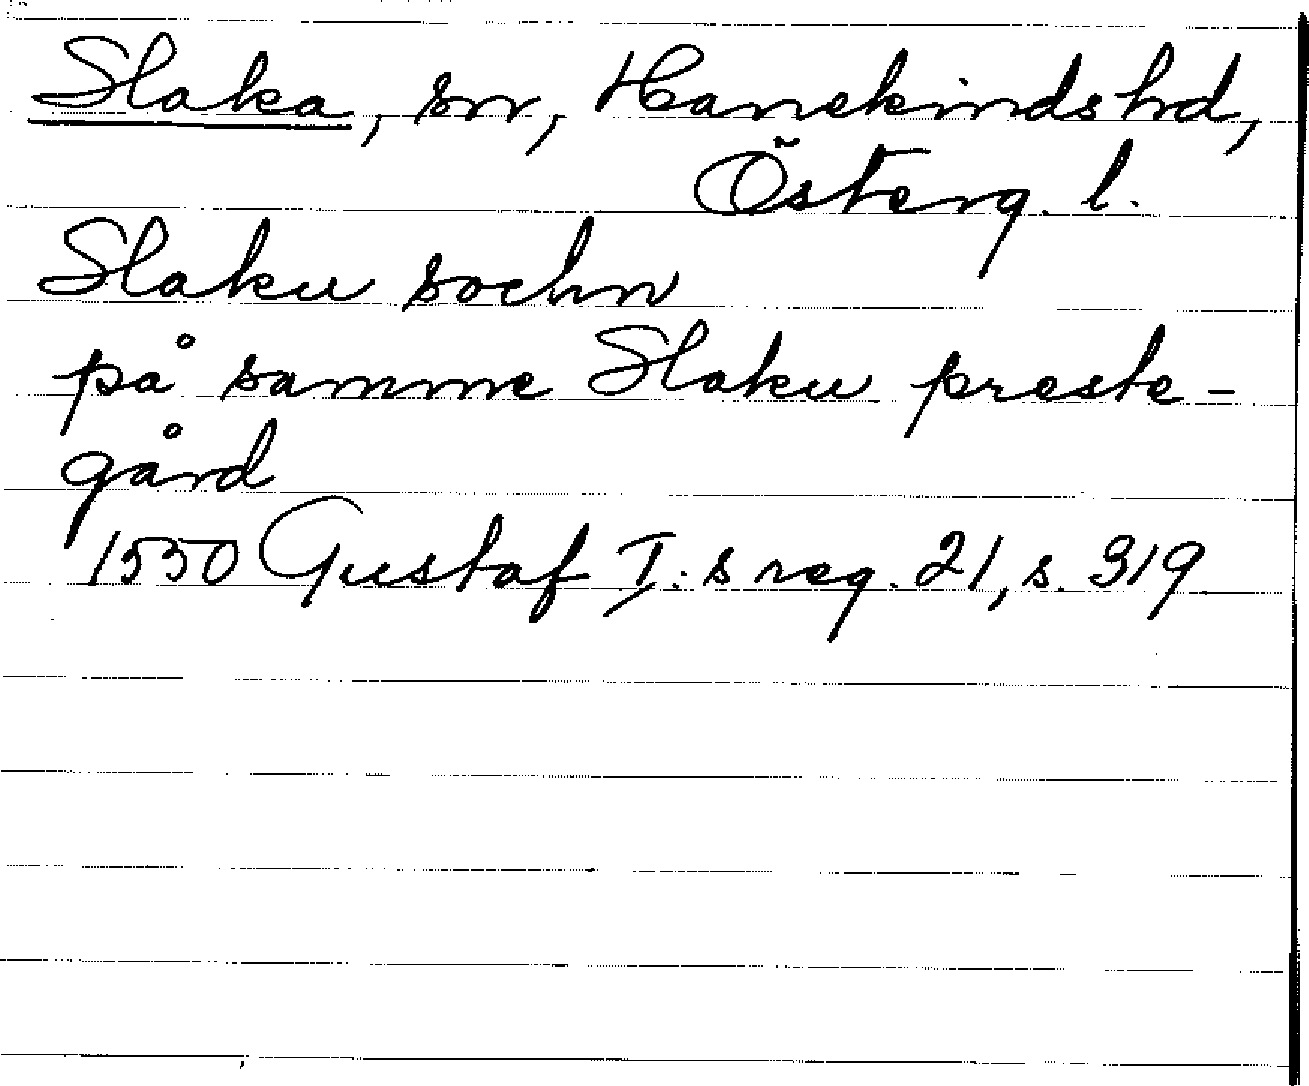 Slaka, sn, Hanekinds hd,
Österg. l.
Slaku sochn
på samme Slaku preste-
gård
1550 Gustaf I:s reg. 21, s. 319